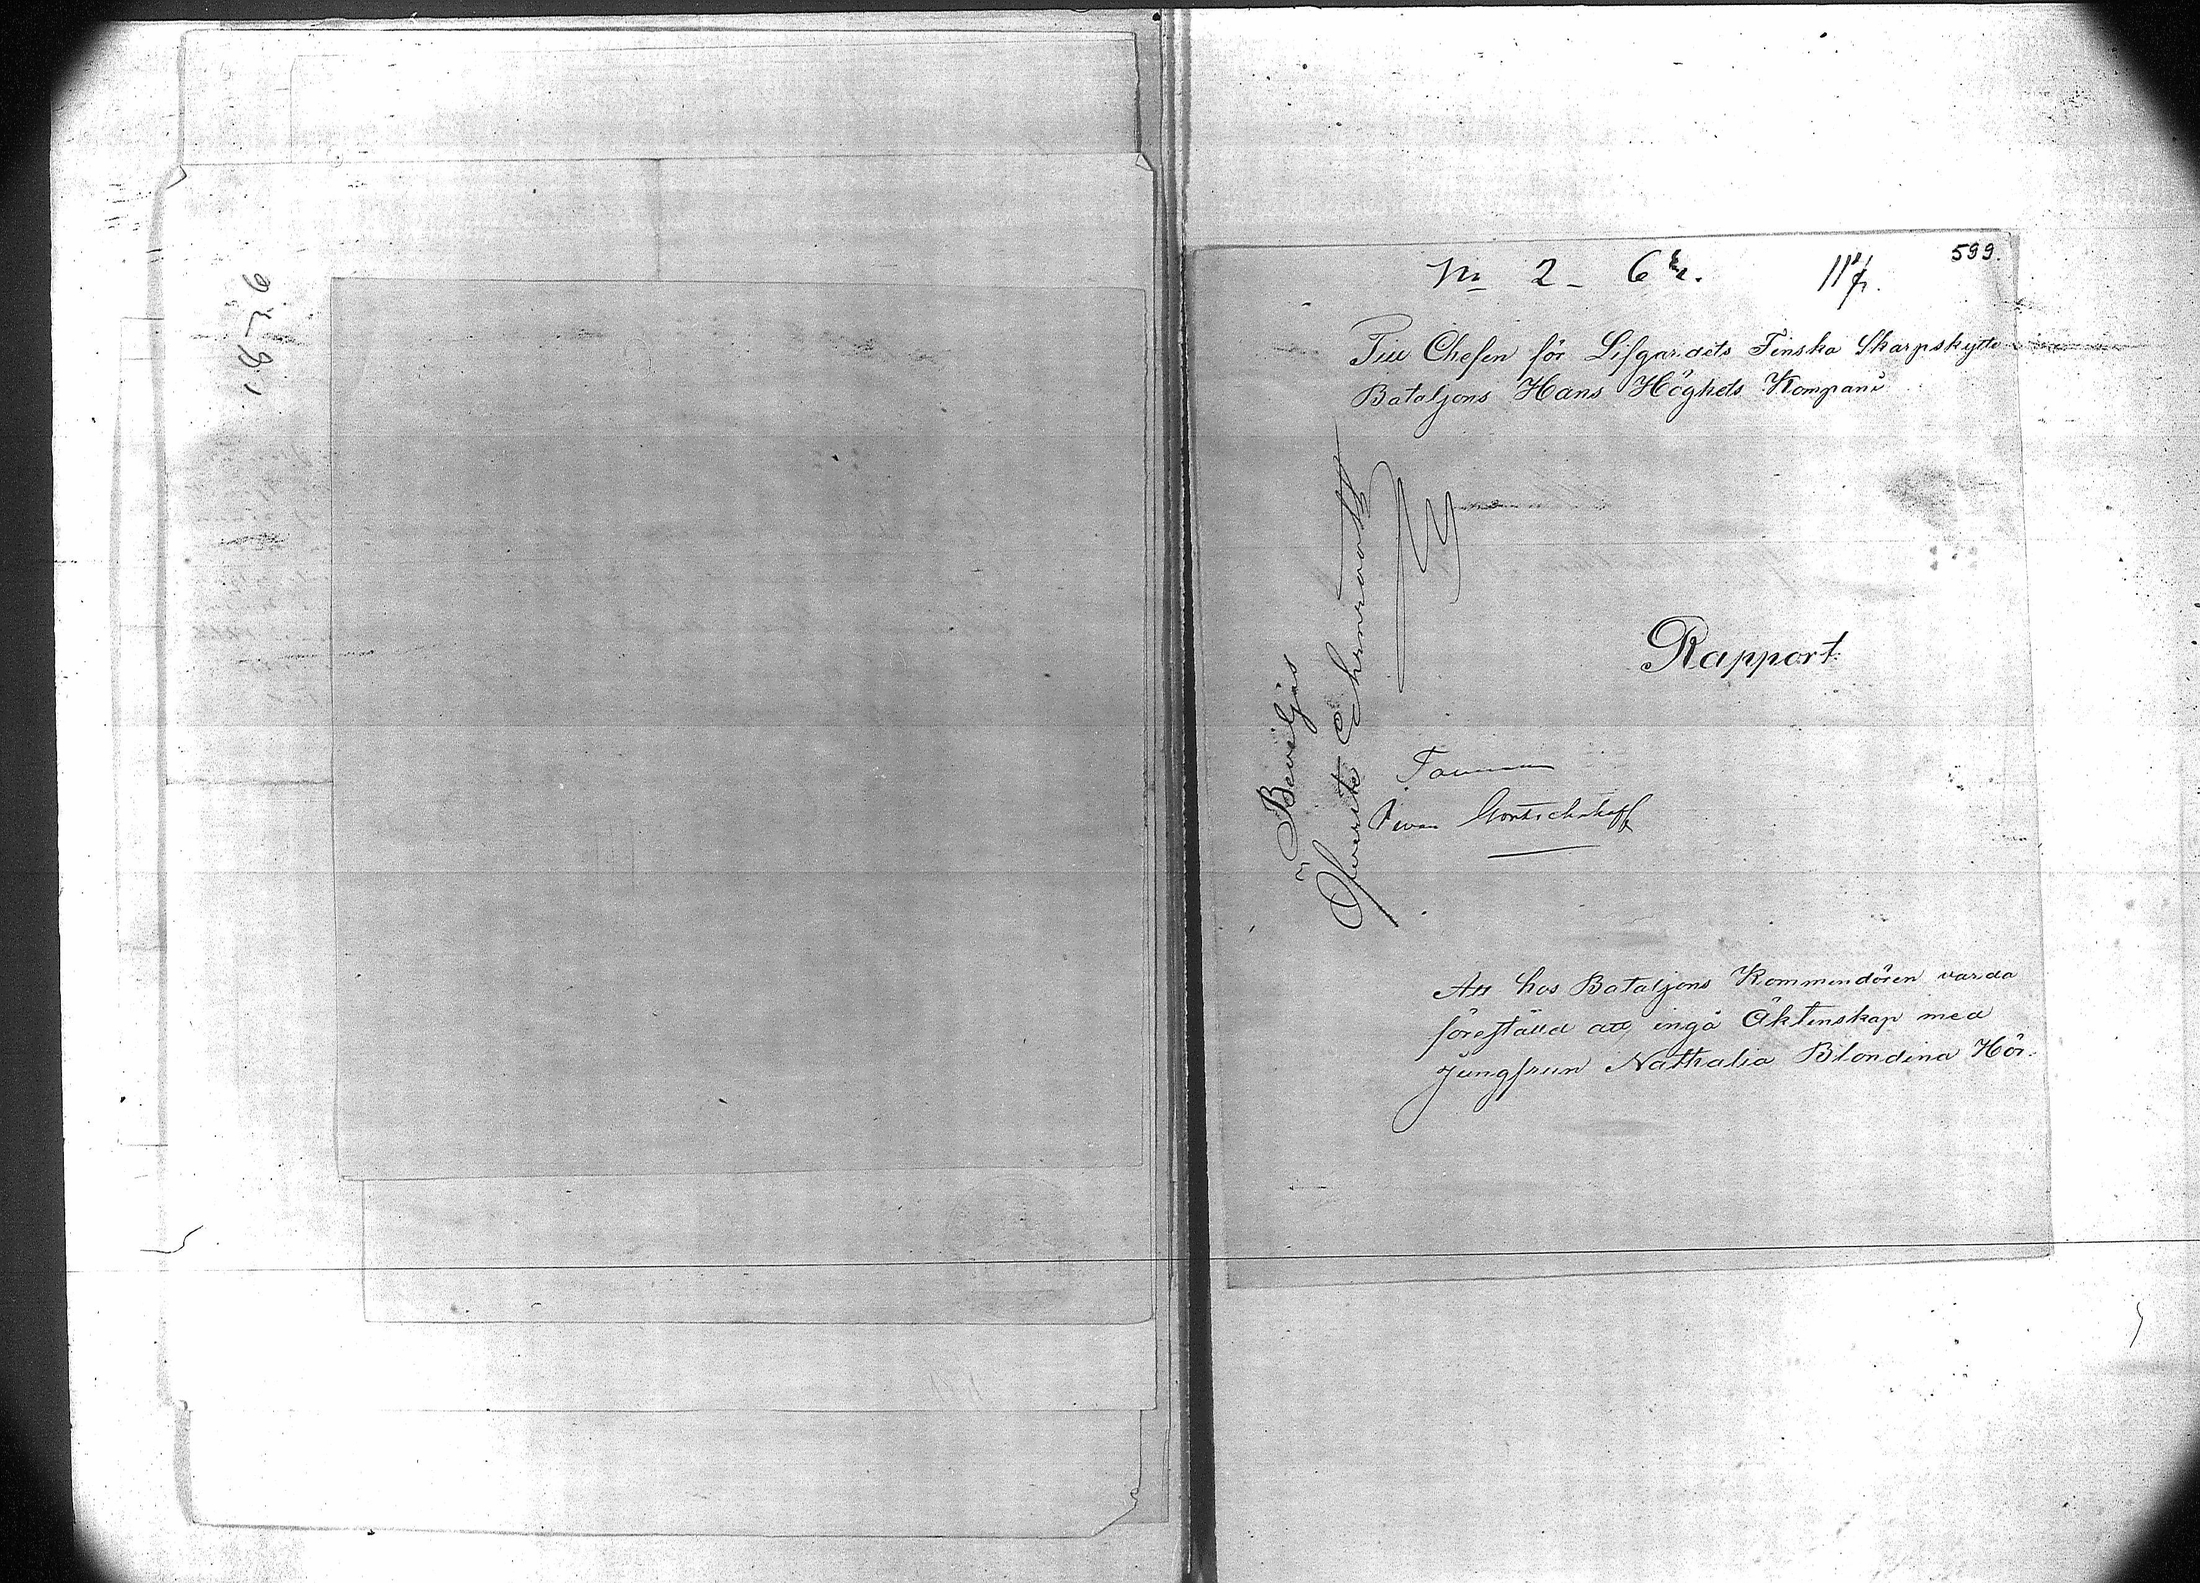 599.
No 2 - 6
Till Chefen för Lifgardets Finska Skarpskytte
Bataljons Hans Höghets Kompani
Rapport.
Beviljas
Öfverste Ehrnrooth
Iwan Gortschakoff
Att hos Bataljons Kommendören varda
föreställd att ingå Äktenskap med
Jungfrun Nathalia Blondina Hör-